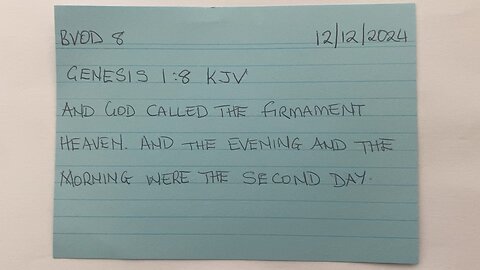 BVOD 8 12/12/2024
GENESIS 1:8 KJV
AND GOD CALLED THE FIRMAMENT
HEAVEN. AND THE EVENING AND THE
MORNING WERE THE SECOND DAY.